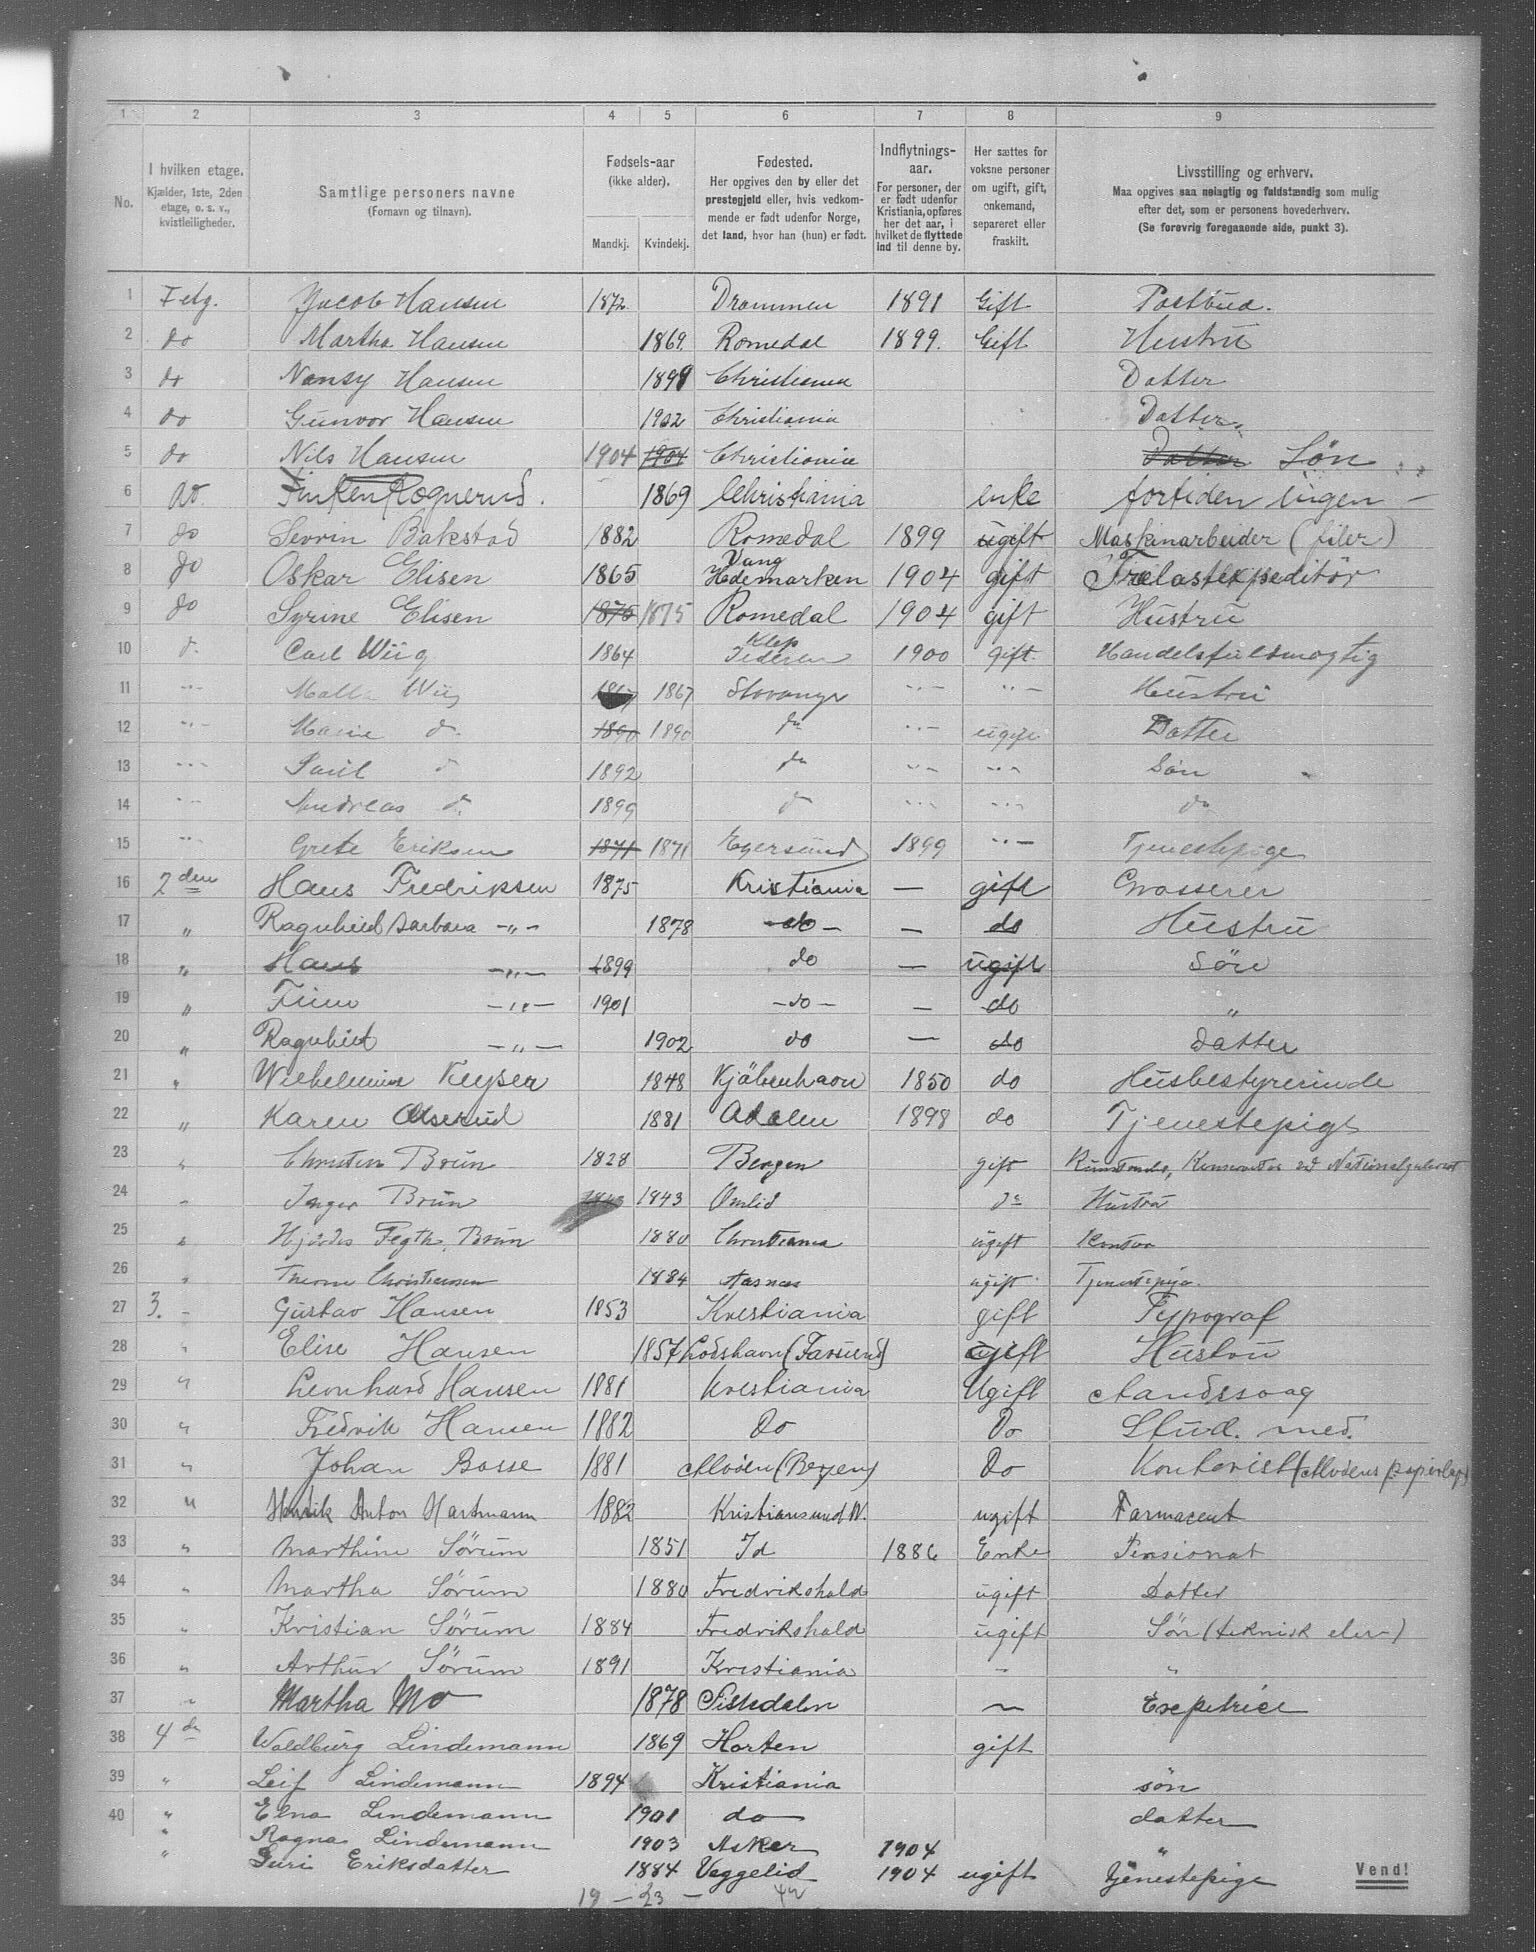 1 2 3 4 5 6 7 8 9
No. I hvilken etage. Kjælder, 1ste, 2den etage, o. s. v., kvistleiligheder. Samtlige personers navne (Fornavn og tilnavn). Fødsels-aar (ikke alder). Mandkj. Kvindekj. Fødested. Her opgives den by eller det prestegjeld eller, hvis vedkommende er født udenfor Norge, det land, hvor han (hun) er født. Indflytnings-aar. For personer, der er født udenfor Kristiania, opføres her det aar, i hvilket de flyttede ind til denne by. Her sættes for voksne personer om ugift, gift, enkemand, separeret eller fraskilt. Livsstilling og erhverv. Maa opgives saa nøiagtig og fuldstændig som mulig efter det, som er personens hovederhverv. (Se forøvrig foregaaende side, punkt 3).
1 I etg. Jacob Hansen 1872 Drammen 1891 Gift Postbud.
2 do Martha Hansen 1869. Romedal 1899. Gift Hustru
3 do Nansy Hansen 1899 Christiania Datter
4 do Gunvor Hansen 1902 Christiania Datter
5 do Nils Hansen 1904 1904 Christiania Datter Søn
6 do. Rognerud. 1869 Christiania enke fortiden ingen
7 do Sevrin Bakstad 1882 Romedal 1899 ugift Maskinarbeider (filer)
8 do Oskar Elisen 1865 Vang Hedemarken 1904 gift Trælastexpeditør
9 do Syrine Elisen 1875 1875 Romedal 1904 gift Hustru
10 d. Carl Wiig 1864 Klep Jederen 1900 gift. Handelsfuldmægtig
11 "- Malla Wiig 1867 1867 Stavanger "- "- Hustru
12 "- Marie d. 1890 1890 do "- ugift Datter
13 "- Paul d 1892 do "- "- Søn
14 "- Andreas d. 1899 d "- "- do
15 "- Grete Eriksen 1871 1871 Egersund 1899 "- Tjenestepige
16 2den Hans Fredriksen 1875 Kristiania — gift Grosserer
17 " Ragnhild Barbara -"- 1878 -do- — do Hustru
18 " Hans -"- 1899 do — ugift Søn
19 " Finn -"- 1901 -do- — do "
20 " Ragnhild -"- 1902 do — do Datter
21 " Wilhelmine Keyser 1848 Kjøbenhavn 1850 do Husbestyrerinde
22 " Karen Alserud 1881 Adalen 1898 do Tjenestepige
23 " Christen Brun 1828 Bergen gift Kunstmaler, Konservator ved Nationalgaleriet
24 " Inger Brun 1843 1843 Omlid do Hustru
25 " Hjørdis Fegth Brun 1880 Christiania ugift Kontor
26 " Christiansen 1884 Aasnes ugift Tjenestepige.
27 3. - Gustav Hansen 1853 Kristiania gift Typograf
28 " Elise Hansen 1857 Loshavn (Farsund) gift Hustru
29 " Leonhard Hansen 1881 Kristiania Ugift Aandssvag
30 " Fredrik Hansen 1882 Do Do Stud. med.
31 " Johan Bosse 1881 Alvøen (Bergen) Do Kontorist (Alvøens papirlager)
32 " Henrik Anton Hartmann 1882 Kristiansund N. ugift Farmaceut
33 " Marthine Sørum 1851 Id 1886 Enke Pensionat
34 " Martha Sørum 1880 Fredrikshald ugift Datter
35 " Kristian Sørum 1884 Fredrikshald ugift Søn (teknisk elev)
36 " Arthur Sørum 1891 Kristiania " "
37 " Martha Mo 1878 Tistedalen " Exepetrice
38 4de Waldburg Lindemann 1869 Horten gift
39 " Leif Lindemann 1894 Kristiania søn
40 " Elna Lindemann 1901 do datter
" Ragna Lindemann 1903 Asker 1904 "
" Guri Eriksdatter 1884 Veggelid 1904 ugift tjenestepige
Vend!
19 - 23 - 42